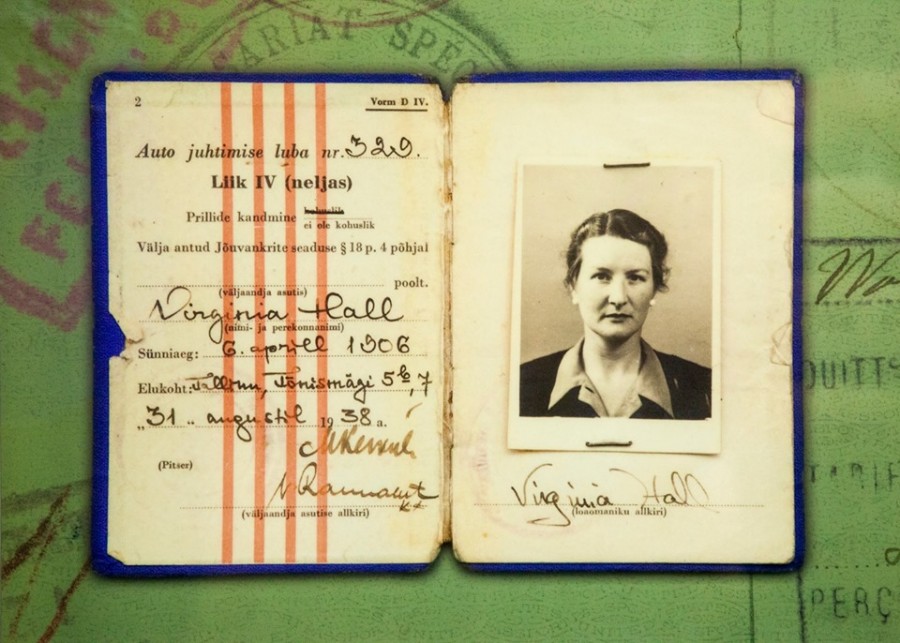 ARIAT SPEC
2
Vorm D IV.
Auto juhtimise luba nr. 320.
Liik IV (neljas)
Prillide kandmine kohuslik
ei ole kohuslik
Välja antud Jõuvankrite seaduse § 18 p. 4 põhjal
poolt.
(väljaandja asutis)
Virginia Hall
(nimi- ja perekonnanimi)
Sünniaeg: 6. aprill 1906
Elukoht: Tallinn, Tõnismägi 5b, 7
„31„ augustil 1938 a.
(Pitser)
(väljaandja asutise allkiri)
Virginia Hall
(loaomaniku allkiri)
QUITT
PERÇ